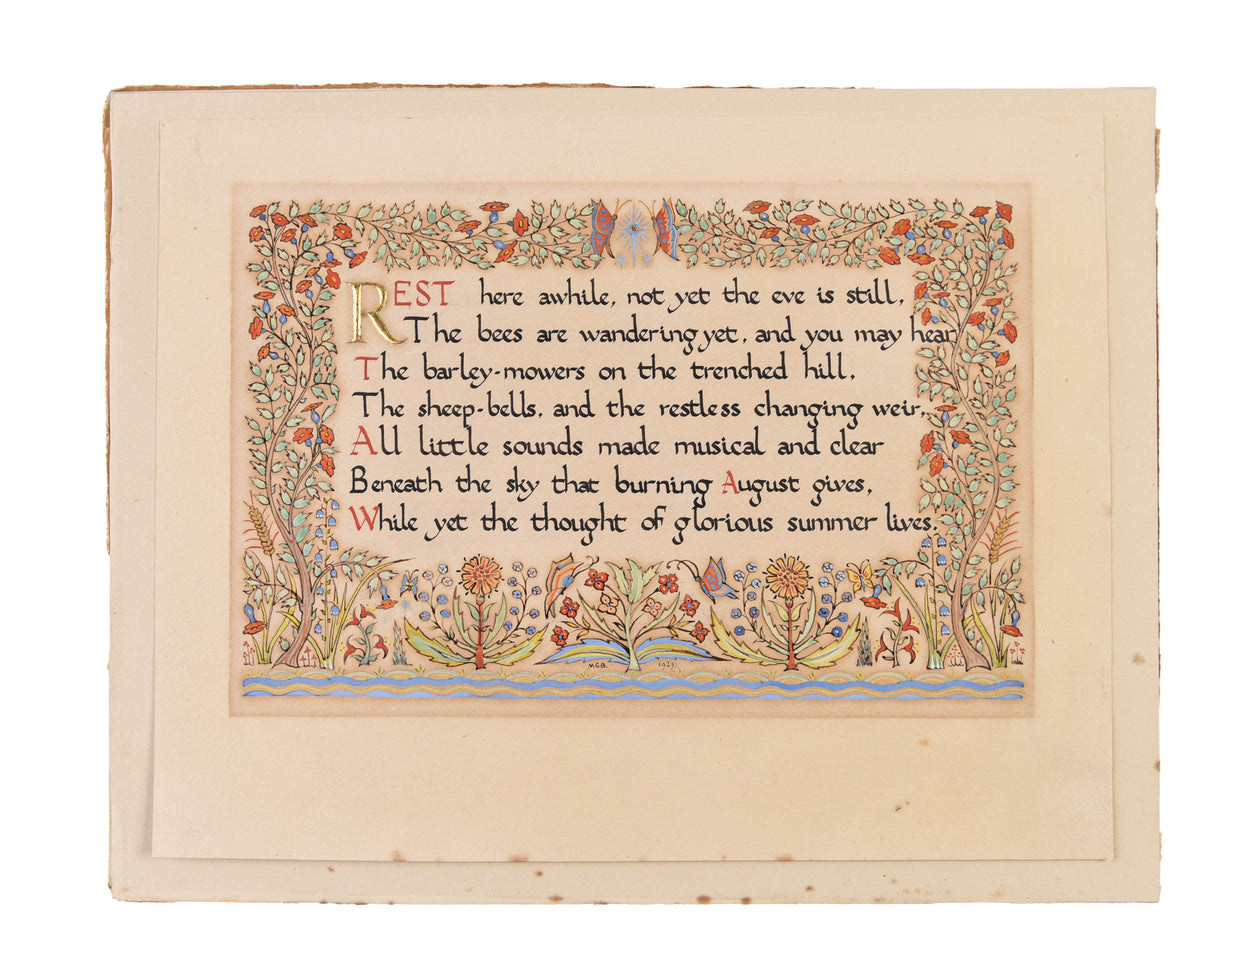 REST here awhile, not yet the eve is still,
The bees are wandering yet, and you may hear
The barley-mowers on the trenched hill,
The sheep-bells, and the restless changing weir,
All little sounds made musical and clear
Beneath the sky that burning August gives,
While yet the thought of glorious summer lives.
M.G.B. 1923.